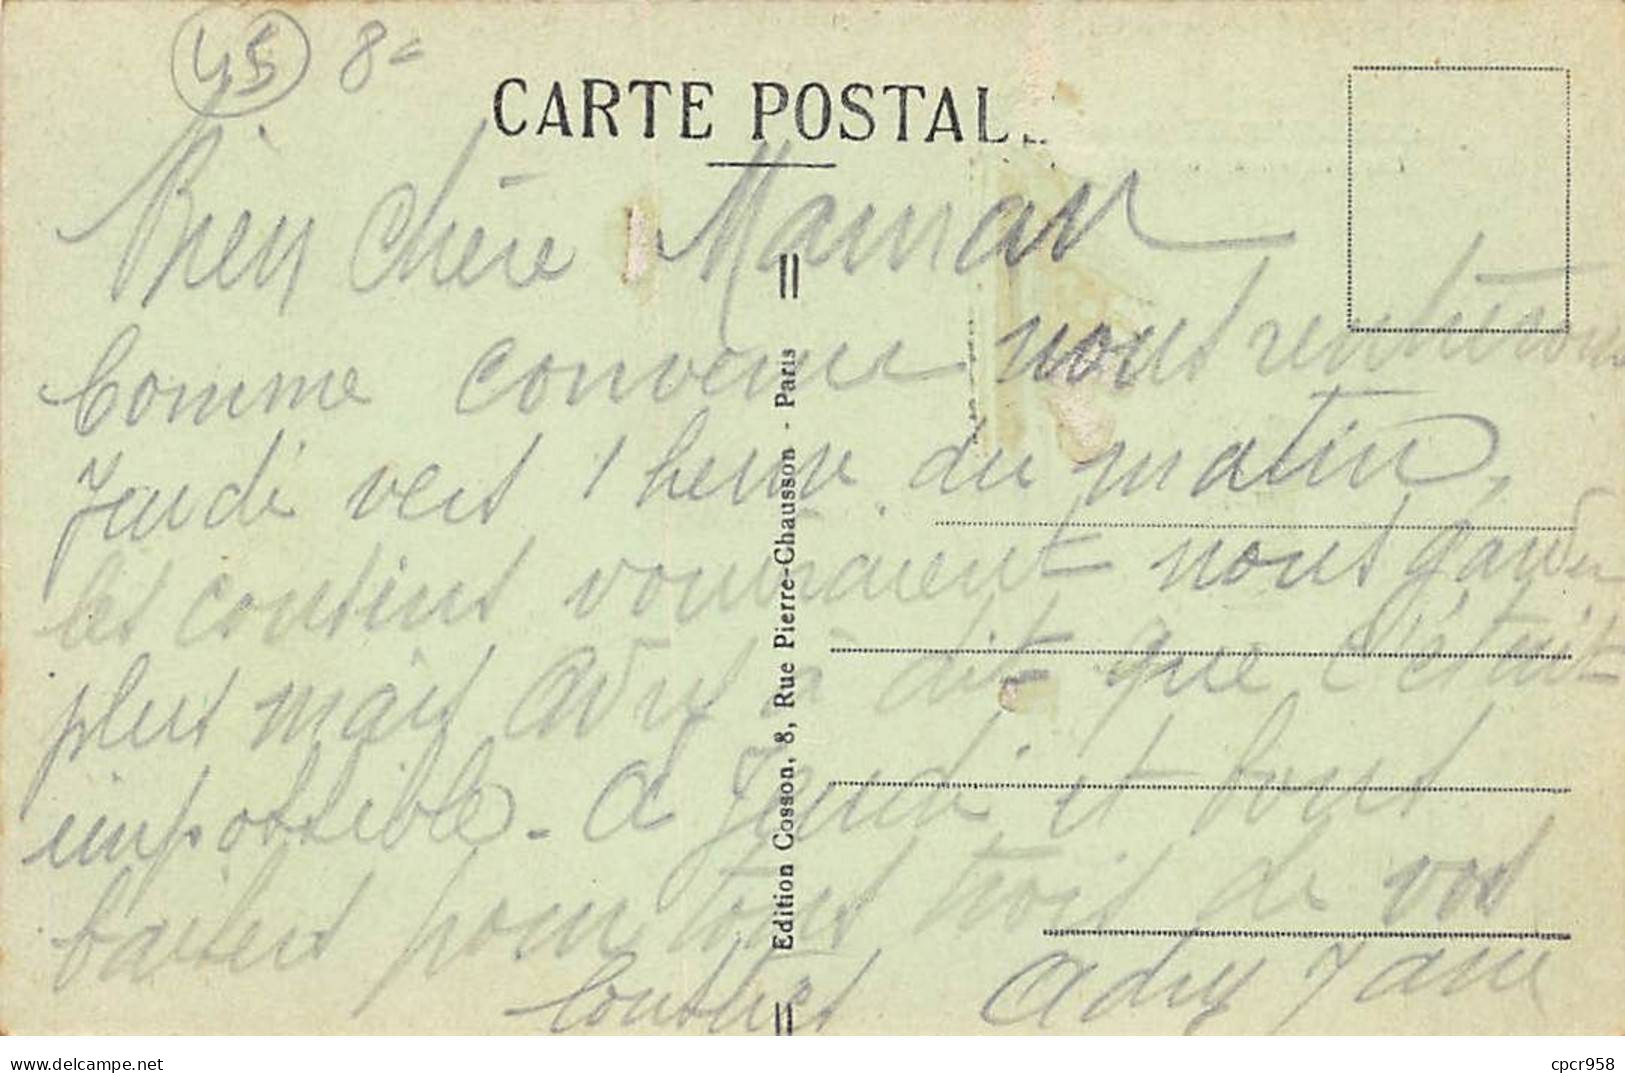 45 8=
CARTE POSTALE
Bien chère Maman
Comme convenu nous rentrerons
Jeudi vers 1 heure du matin
les cousins voudraient nous garder
plus mais à dit que c'était
impossible. a Jeudi et tous
baisers pour tous trois de vos
Jane
Edition Cosson, 8, Rue Pierre-Chausson - Paris
delcampe.net
cpcr958